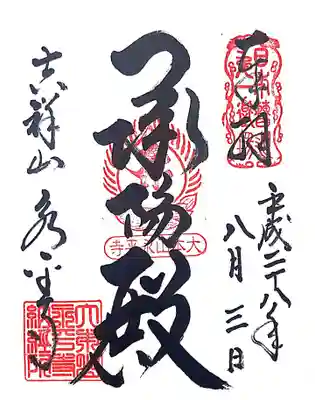 奉拝
平成二十八年
八月三日
承陽殿
大本山永平寺
吉祥山永平寺